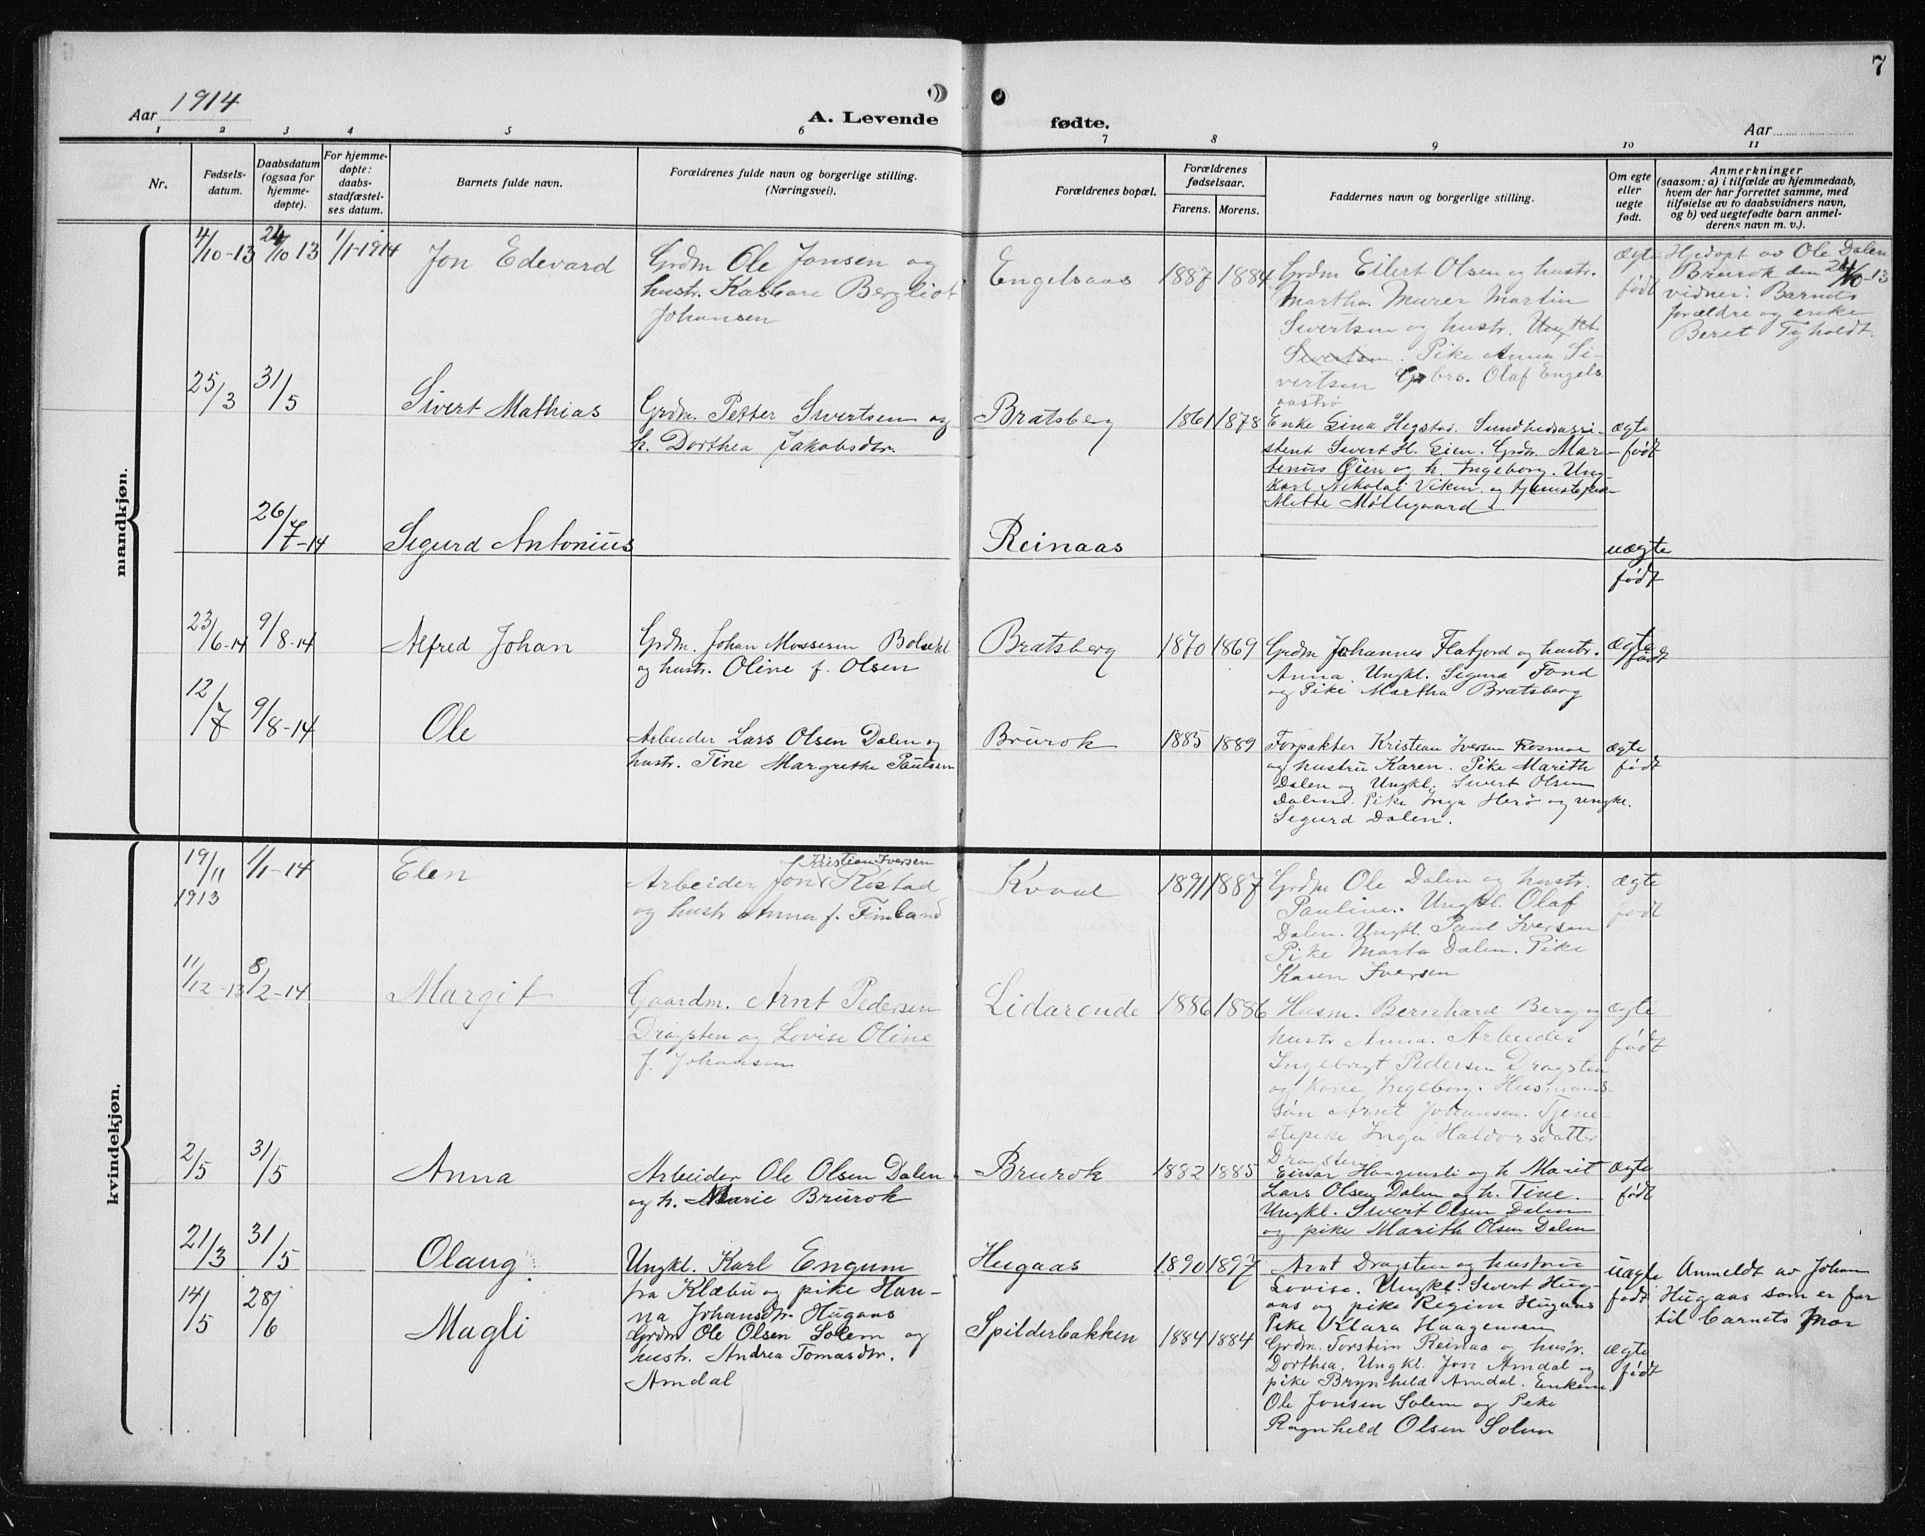 7
Aar 1914
A. Levende
fødte.
Aar
1 2 3 4 5 6 7 8 9 10 11
Nr.
Fødsels-
datum.
Daabsdatum
(ogsaa for
hjemme-
døpte).
For hjemme-
døpte:
daabs-
stadfæstel-
ses datum.
Barnets fulde navn.
Forældrenes fulde navn og borgerlige stilling.
(Næringsvei).
Forældrenes bopæl.
Forældrenes
fødselsaar.
Farens. Morens.
Faddernes navn og borgerlige stilling.
Om egte
eller
uegte
født.
Anmerkninger
(saasom: a) i tilfælde av hjemmedaab,
hvem der har forrettet samme, med
tilføielse av to daabsvidners navn,
og b) ved uegtefødte barn anmel-
derens navn m. v.).
mandkjøn.
4/10-13 24/10 13 1/1-1914 Jon Edevard
Grdm Ole Jonsen og
hustr. Kasbare Bergliot
Johansen
Engelsaas 1887 1884
Grdm Eilert Olsen og hustr.
Martha. Murer Martin
Sivertsen og hustr. Ungkl.
Sivertsen. Pike Anna Si-
vertsen Gbrs. Olaf Engels
aastrø
ægte
født
Hjdøpt av Ole Dalen
Brurok den 24/10-13
vidner: Barnets
forældre og enke
Beret Tyholdt.
25/3 31/5 Sivert Mathias
Grdm. Petter Sivertsen og
h. Dorthea Jakobsdtr.
Bratsberg 1861 1878
Enke Gina Hegstad. Sundhedsassi-
stent Sivert H. Eien. Grdm. Mar-
tinus Øien og h. Ingeborg. Ung
Karl Nikolai Viken. og tjenestepike
Mette Møllegaard
ægte
født
26/7-14 Sigurd Antonius
Reinaas
uægte
født
23/6-14 9/8-14 Alfred Johan
Grdm. Johan Mossesen
og hustr. Oline f. Olsen
Bratsberg 1870 1869
Grdm Johannes Flatjord og hustr.
Anna. Ungkl. Sigurd Fond
og Pike Martha Bratsberg
ægte
født
12/7 9/8-14 Ole
Arbeider Lars Olsen Dalen og
hustr. Tine Margrethe Paulsen
Brurok 1885 1889
Forpakter Kristian Iversen Rosmoe
og hustru Karen. Pike Marith
Dalen og Ungkl. Sivert Olsen
Dalen. Pike Inga Herø og ungkl.
Sigurd Dalen.
ægte
født
kvindekjøn.
19/11 1913 1/1-14 Elen
Kristian Iversen
Arbeider Jon Ristad
og hustr Anna f. Finland
Kvaal 1891 1887
Grdm Ole Dalen og hustr.
Pauline. Ungkl. Olaf
Dalen. Ungkl. Paul Iversen
Pike Marta Dalen. Pike
Karen Iversen
ægte
født
11/12-13 8/2-14 Margit
Gaardm. Arnt Pedersen
Dragsten og Lovise Oline
f. Johansen
Lidarende 1886 1886
Husm. Bernhard Berg og
hustr Anna. Arbeider
Ingebrigt Pedersen Dragsten
og kone Ingeborg. Husmands
søn Arnt Johansen. Tjene-
stepike Inga Haldorsdatter
Dragsten
ægte
født
2/5 31/5 Anna
Arbeider Ole Olsen Dalen
og h. Marie Brurok
Brurok 1882 1885
Einar Haugensli og h. Marit
Lars Olsen Dalen og h. Tine.
Ungkl. Sivert Olsen Dalen
og pike Marith Olsen Dalen
ægte
født
21/3 31/5 Olaug
Ungkl. Karl Engum
fra Klæbu og pike Han-
na Johansdtr. Hugaas
Hugaas 1890 1897
Arnt Dragsten og hustru
Lovise. Ungkl. Sivert Hug-
aas og pike Regine Hugaas
Pike Klara Haagensen
uægte
født
Anmeldt av Johan
Hugaas som er far
til barnets mor
14/5 28/6 Magli
Grdm Ole Olsen Solem og
hustr. Andrea Tomasdtr.
Amdal
Spilderbakken 1884 1884
Grdm. Torstein Reinaa og hustr.
Dorthea. Ungkl. Jon Amdal og
pike Brynhild Amdal. Enkem.
Ole Jonsen Solem og Pike
Ragnhild Olsen Solem
ægte
født